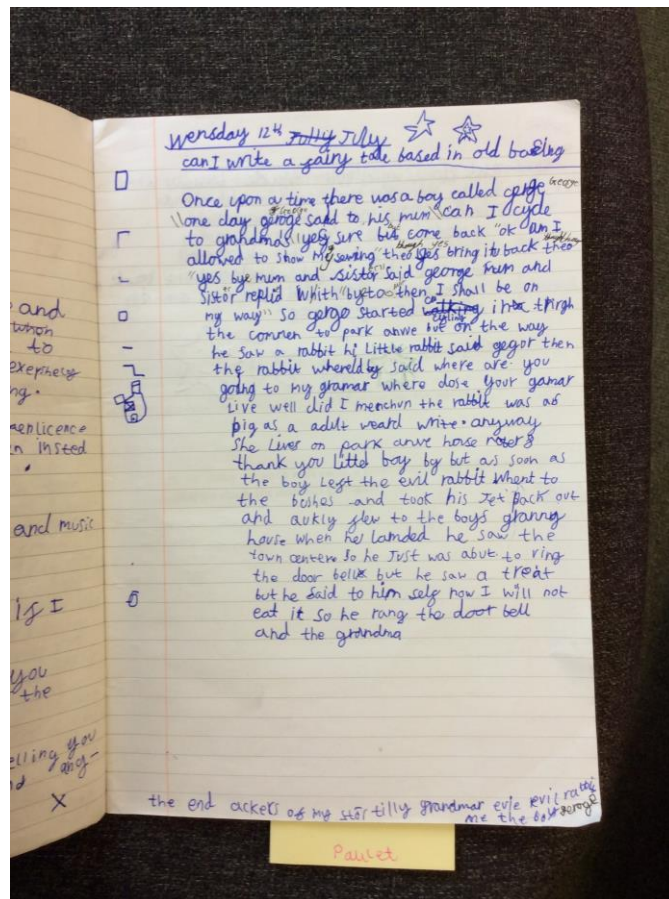 wensday 12th Jully Jully
can I write a fairy tale based in old basing
Once upon a time there was a boy called gerge George
one day geroge said to his mum "can I cycle
to grandmas "yes sure but come back "ok am I
allowed to show my sewing" though yes bring it back though
"yes bye mum and sistor" said george mum and
Sistor replid whith "by to" then I shall be on
my way" so gergo started walking cycling in thrgh
the common to park anwe but on the way
he saw a rabbit hi Little rabbit said gegor then
the rabbit said where are you
going to my gramar where dose your gamar
Live well did I menchun the rabbit was as
pig as a adult weard write. anyway
She Lives on park anve horse
thank you little boy by but as soon as
the boy left the evil rabbit whent to
the bushes and took his Jet pack out
and flew to the boys granny
house when he landed he saw the
town centere so he Just was abut to ring
the door bell but he saw a treat
but he said to him self now I will not
eat it so he rang the doot bell
and the grandma
the end ackers of my stor tilly grandmar evie evil rabbi
me the boy geroge
Paulet
and
to
ng.
n insted
and music
if I
you
the
elling you
X